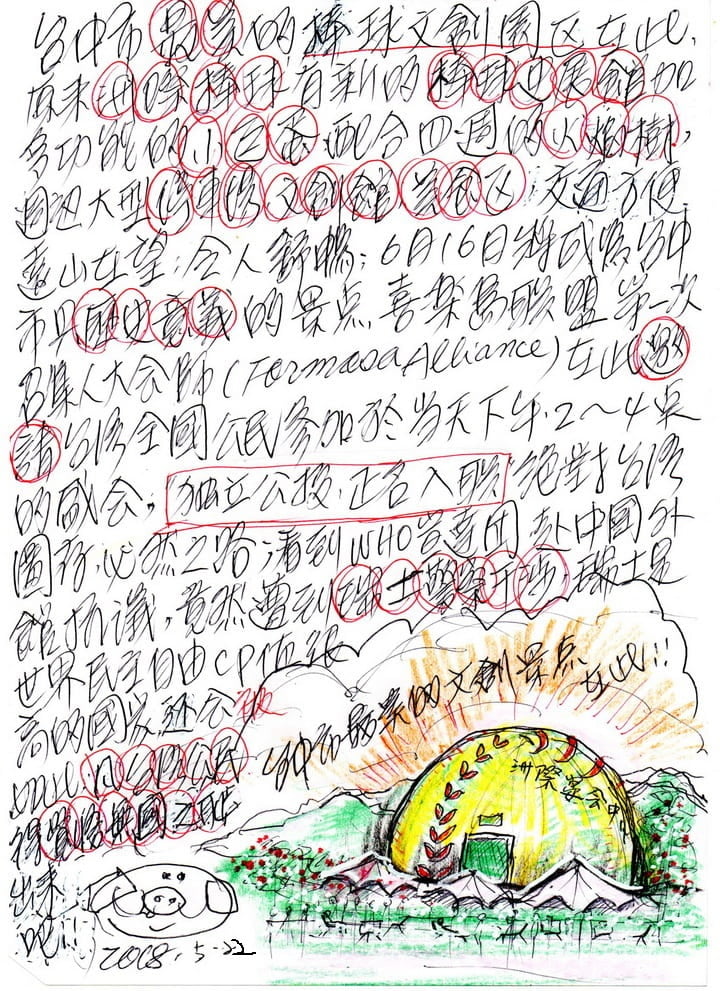 台中市最美的棒球文創園区在此,
原来洲際棒球有新的棒球史奨館加
多功能的小巨蛋,配合四週的火焰樹,
週邊大型停車場文創館美食区,交通方便
遠山在望,令人舒暢;6月16日将成為台中
市具歷史意義的景点,喜樂島联盟第一次
召集人大会師(Formosa Alliance)在此邀
請台湾全國公民参加於当天下午2~4点
的盛会,独立公投,正名入联絕對台湾
圖存必然之路;看到WHO宣達团赴中國外
館抗議,竟然遭到瑞士警察干涉,瑞士是
世界民主自由CP值很
高的國家还会被
如此,凡台湾公民
得覺醒
出来
吧!!
台中市最美的文創景点
在此!!
洲際宴会中心
5-22